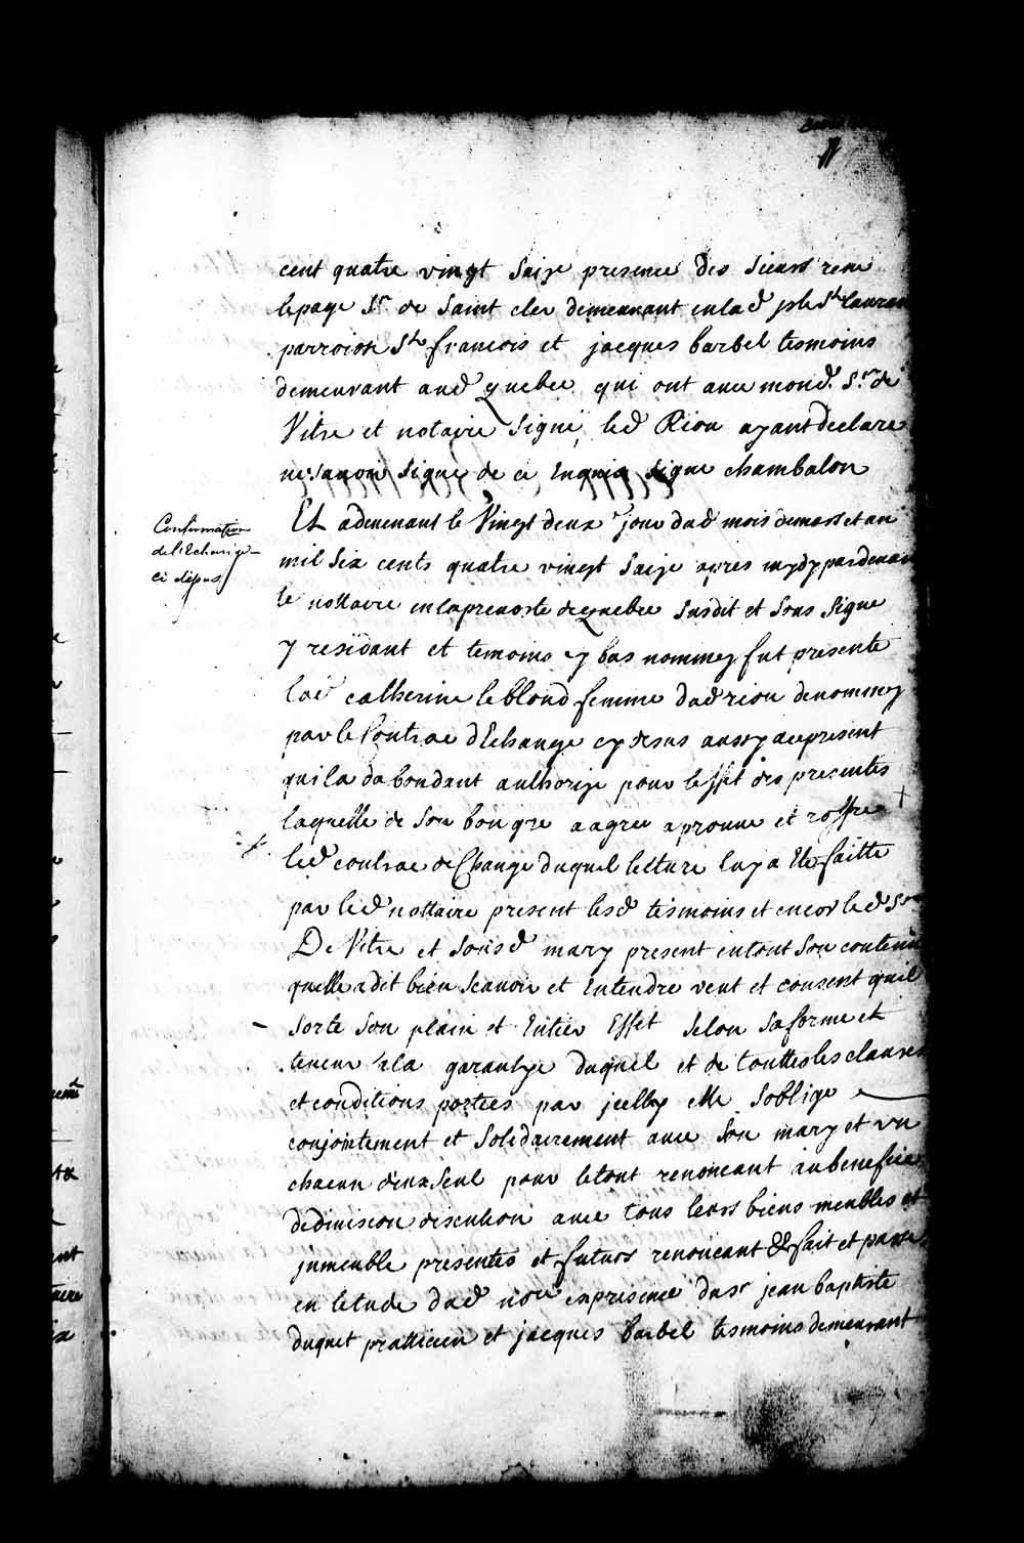 11
cent quatre vingt saize presence des sieurs rene
lepage Sr de Saint cler demeurant en lad isle St Lauran
parroisse St francois et jacques barbel tesmoins
demeurant aud quebec qui ont avec mond. Sr. de
Vitre et notaire signé, led Riou ayant declare
ne scavoir signe de ce Enquis signe chambalon
Confirmation
de l'Echange
ci dessus
Et advenant le Vingt deux jour dud mois de mars et an
mil six cents quatre vingt saize apres mydy pardevan
le nottaire en la prevoste de quebec susdit et sous signe
y residant et temoins cy bas nommez fut presente
lad catherine leblond femme dud riou denommez
par le Contrac dEchange cy desus aussy a ce present
qui la dabondant authorize pour leffet des presentes
laquelle de son bon gre a agree aprouve et +
led contrac dechange duquel lecture luy a Ete faitte
par led nottaire present lesd tesmoins et encor led Sr
De Vitre et sond mary present en tout son contenu
quelle a dit bien scavoir et Entendre veut et consent quil
sorte son plain et Entier Effet selon sa forme et
teneur a la garantye duquel et de touttes les clauses
et conditions portees par jcelluy elle soblige
conjointement et solidairement avec son mary et un
chacun deux seul pour le tout renoncant au benefice
de division discution avec tous leurs biens meubles et
jmmeuble presentes et futurs renoncant &c fait et passe
en letude dud nore en presence du sr jean baptiste
duquet pratticien et jacques barbel tesmoins demeurant